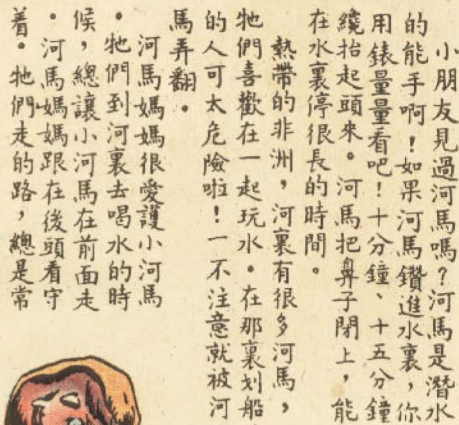 小朋友見過河馬嗎？河馬是潛水
的能手啊！如果河馬鑽進水裏，你
用錶量量看吧！十分鐘、十五分鐘
纔抬起頭來。河馬把鼻子閉上，能
在水裏停很長的時間。
熱帶的非洲，河裏有很多河馬，
牠們喜歡在一起玩水。在那裏划船
的人可太危險啦！一不注意就被河
馬弄翻。
河馬媽媽很愛護小河馬
。牠們到河裏去喝水的時
候，總讓小河馬在前面走
。河馬媽媽跟在後頭看守
着。牠們走的路，總是常